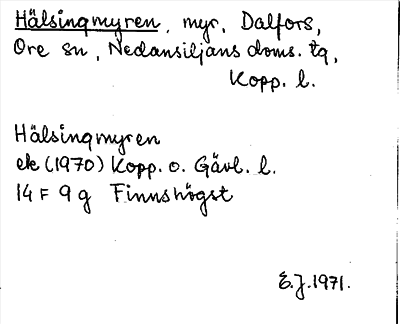 Hälsingmyren, myr, Dalfors,
Ore sn, Nedansiljans doms. tg,
Kopp. l.
Hälsingmyren
ek (1970) Kopp. o. Gävl. l.
14 F 9 g Finnshögst
E.J. 1971.